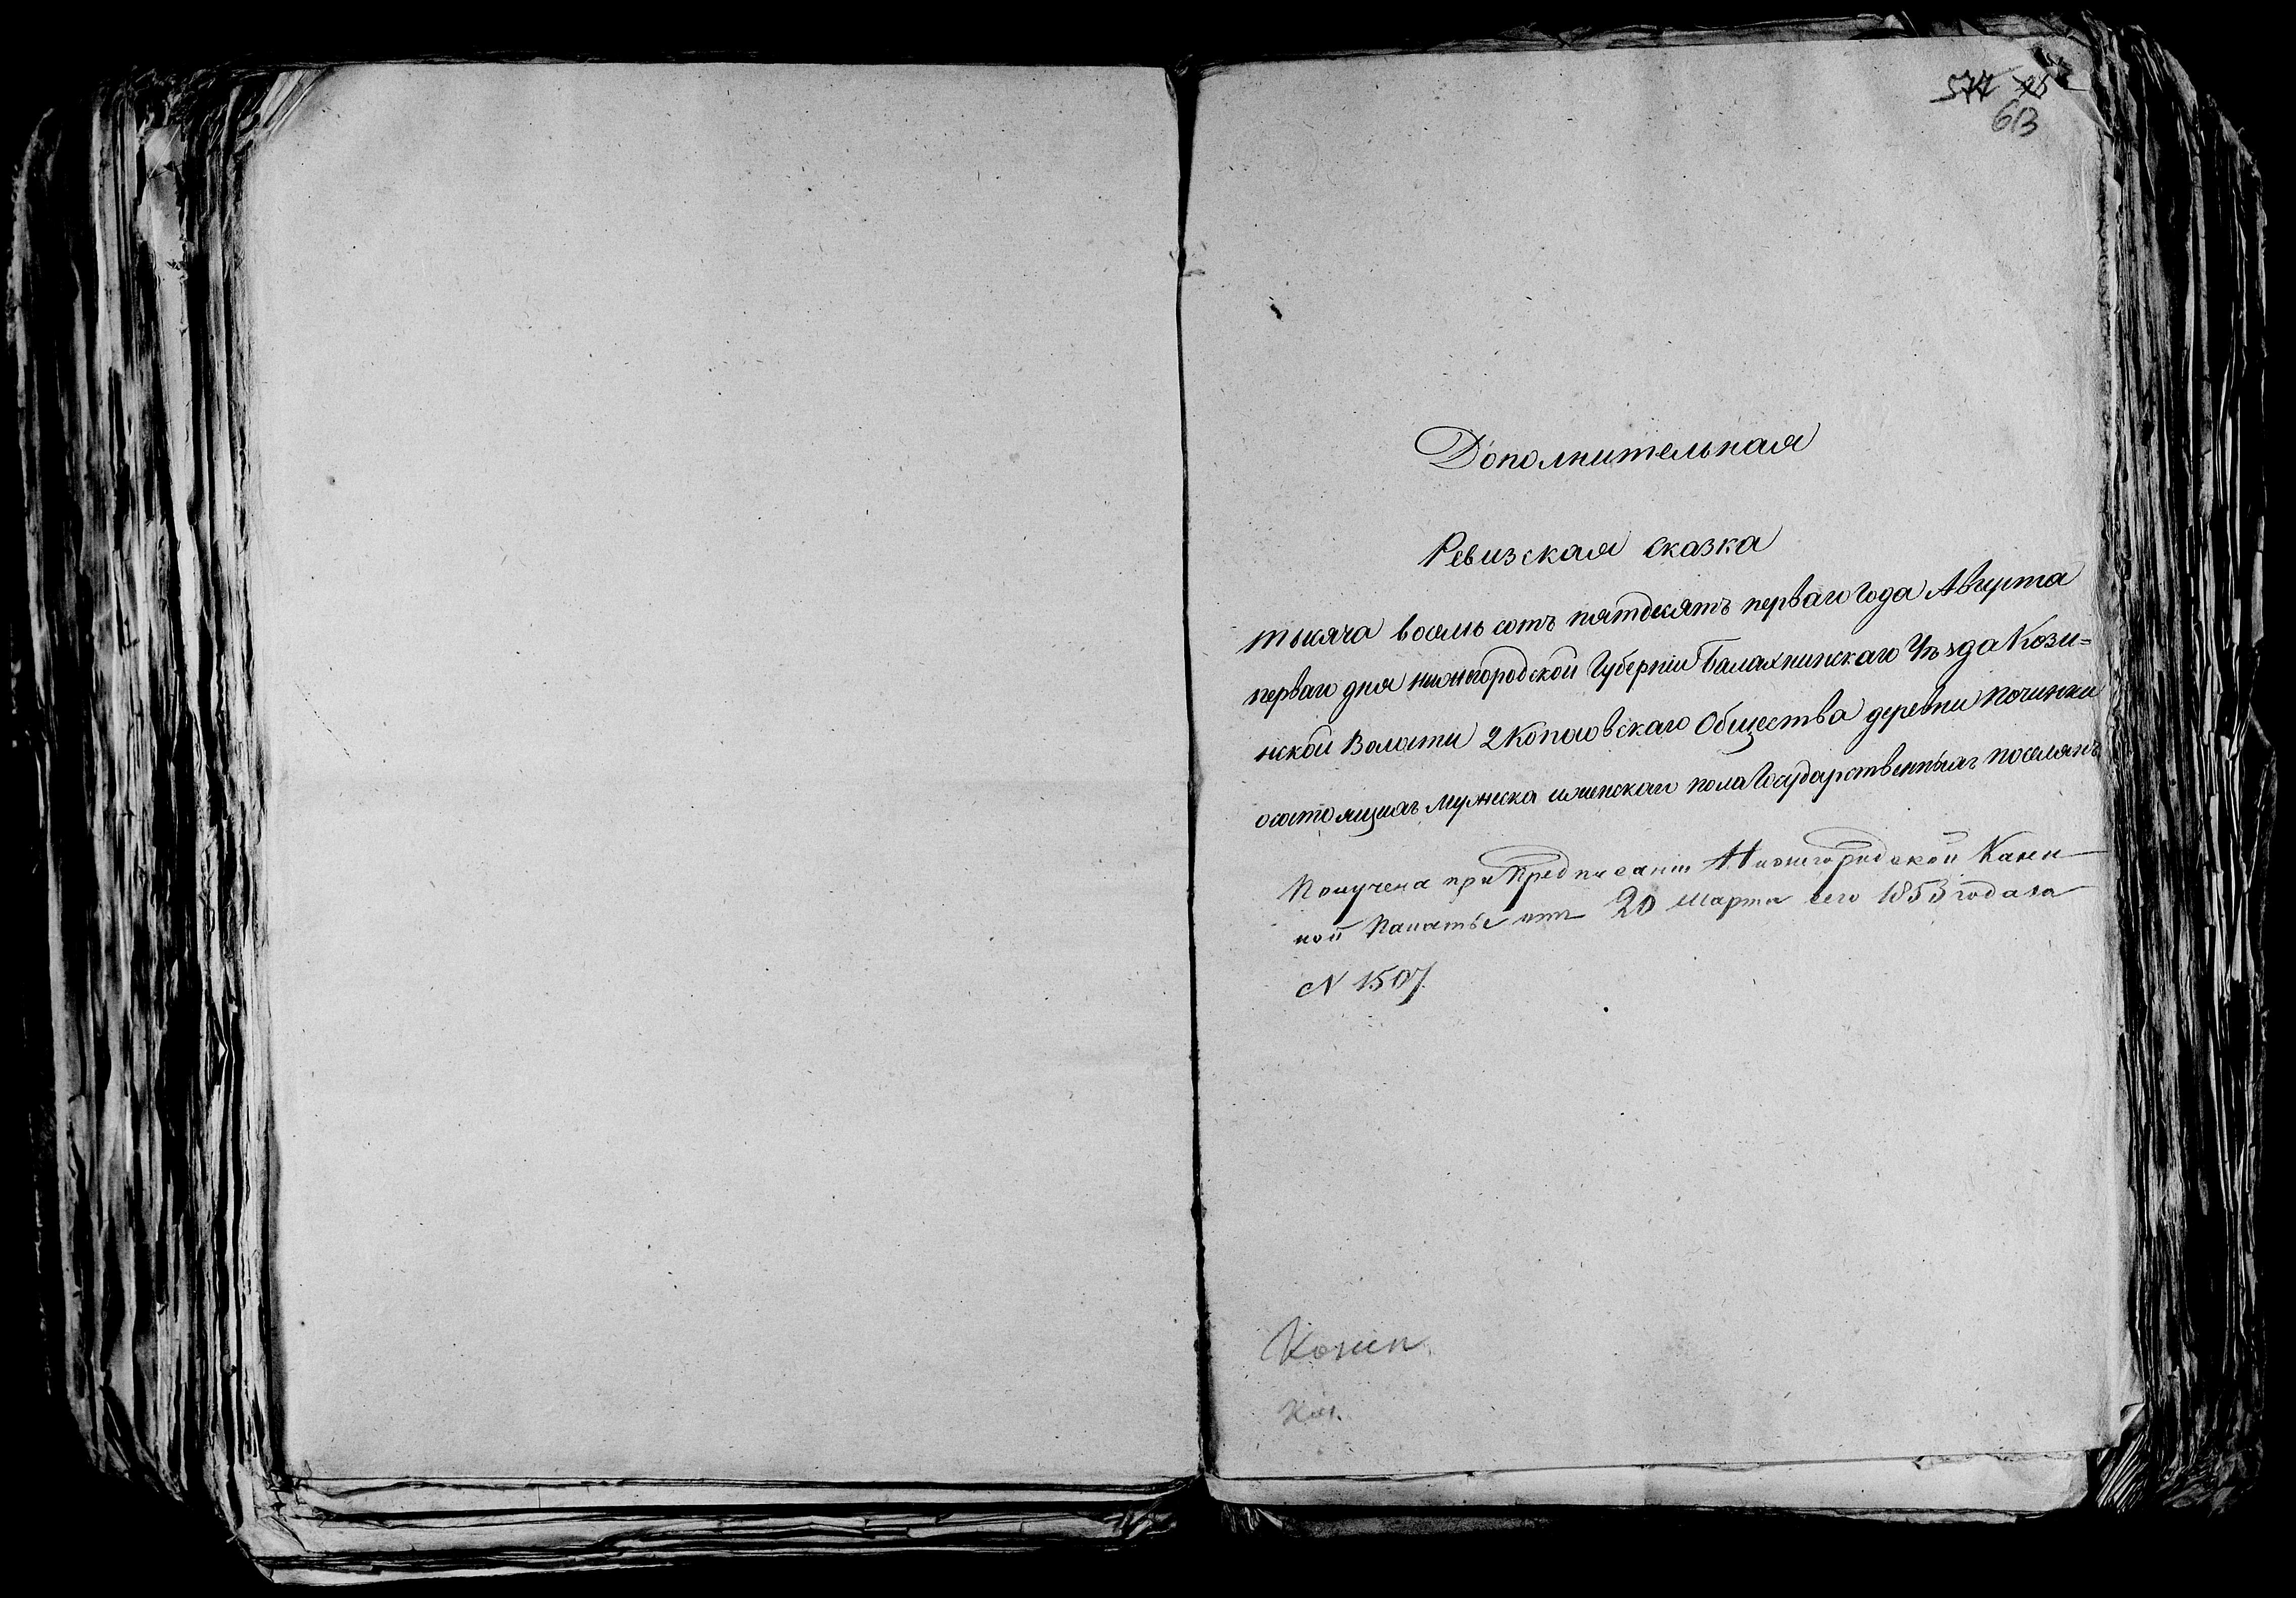 613
Дополнительная
Ревизская сказка
тысяча восемь сотъ пятдесятъ перваго года Августа
перваго дня нижегородской Губерніи Балахнинскаго Уѣзда Кози=
нской Волости 2 Копосовскаго Общества деревни Починки
о состоящихъ мужеска и женскаго пола Государственныхъ поселянъ
Получена при предписаніи Нижегородской Казен
ной Палаты отъ 20 Марта сего 1853 года за
N 1507.
Козин
Коз.